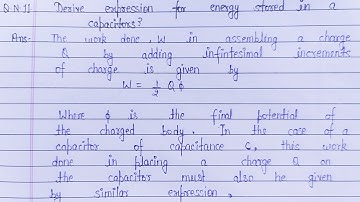 Q.N.11 Derive expression for energy stored in a
capacitors?
Ans- The work done, W in assembling a charge
Q by adding infintesimal increments
of charge is given by
W = 1/2 Q ϕ
Where ϕ is the final potential of
the charged body. In the case of a
capacitor of capacitance C, this work
done in placing a charge Q on
the capacitor must also be given
by similar expression,